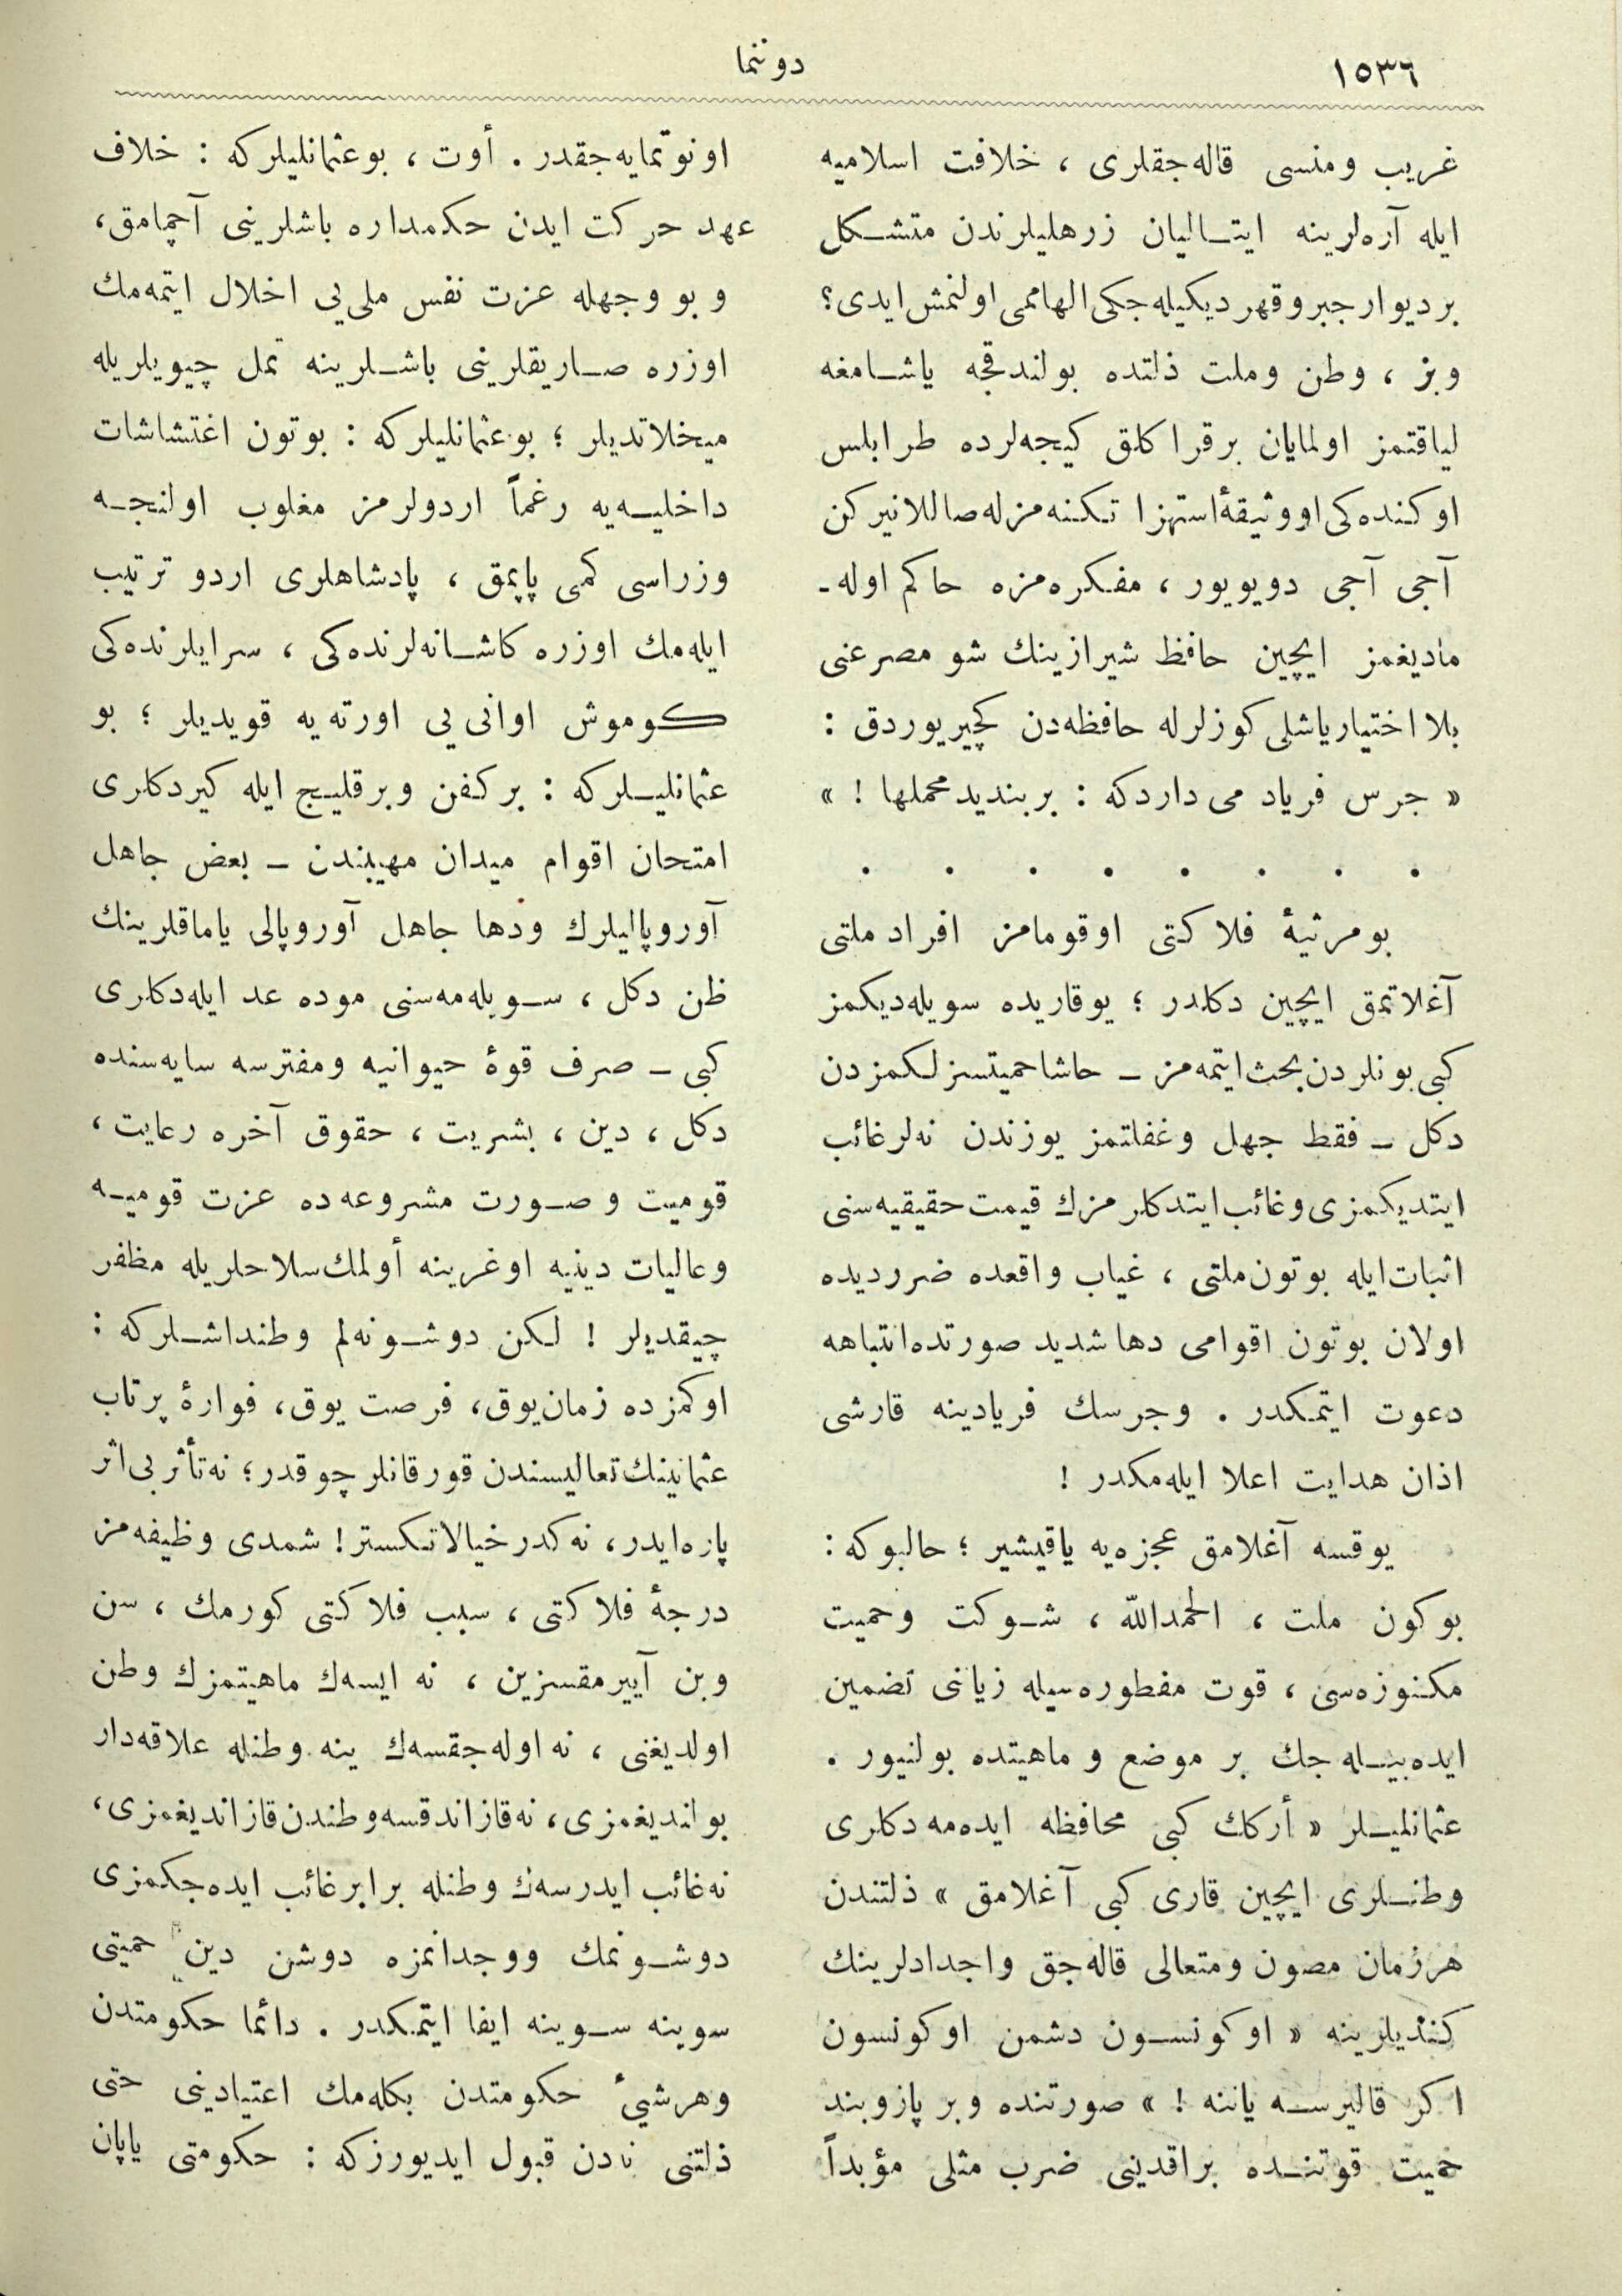 ١٥٣٦
دوننما
غريب ومنسى قاله‌جقلرى ، خلافت اسلاميه
ايله آره‌لرينه ايتاليان زرهليلرندن متشكل
بر ديوار جبر و قهر ديكيله‌جكى الهاممى اولنمش ايدى؟
وبز ، وطن وملت ذلتده بولندقجه ياشامغه
لياقتمز اولمايان بر قراكلق كيجه‌لرده طرابلس
اوكنده‌كى او وثيقهٔ استهزا تكنه‌مزله صاللانيركن
آجى آجى دويويور ، مفكره‌مزه حاكم اوله -
ماديغمز ايچين حافظ شيرازينك شو مصرعنى
بلا اختيار ياشلى كوزلرله حافظه‌دن كچيريوردق :
« جرس فرياد مى داردكه : بربنديد محملها ! »
. . . . . . . .
بو مرثيهٔ فلاكتى اوقومامز افراد ملتى
آغلاتمق ايچين دكلدر ؛ يوقاريده سويله‌ديكمز
كبى بونلردن بحث ايتمه‌مز ـ حاشا حميتسزلكمزدن
دكل ـ فقط جهل وغفلتمز يوزندن نه‌لر غائب
ايتديكمزى و غائب ايتدكلرمزك قيمت حقيقيه‌سنى
اثبات ايله بوتون ملتى ، غياب واقعده ضررديده
اولان بوتون اقوامى دها شديد صورتده انتباهه
دعوت ايتمكدر . وجرسك فريادينه قارشى
اذان هدايت اعلا ايله‌مكدر !
يوقسه آغلامق عجزه‌يه ياقيشير ؛ حالبوكه :
بوكون ملت ، الحمدالله ، شوكت وحميت
مكنوزه‌سى ، قوت مفطوره‌سيله زياننى تضمين
ايده‌بيله‌جك بر موضع و ماهيتده بولنيور .
عثمانليلر « أركك كبى محافظه ايده‌مه‌دكلرى
وطنلرى ايچين قارى كبى آغلامق » ذلتندن
هرزمان مصون ومتعالى قاله‌جق واجدادلرينك
كنديلرينه « اوكونسون دشمن اوكونسون
اكر قاليرسه ياننه ! » صورتنده وبر پازوبند
حميت قوتنده براقدينى ضرب مثلى مؤبداً
اونوتمايه‌جقدر . أوت ، بو عثمانليلركه : خلاف
عهد حركت ايدن حكمداره باشلرينى آچمامق،
و بو وجهله عزت نفس ملى‌يى اخلال ايتمه‌مك
اوزره صاريقلرينى باشلرينه تمل چيويلريله
ميخلاتديلر ؛ بو عثمانليلركه : بوتون اغتشاشات
داخليه‌يه رغماً اردولرمز مغلوب اولنجه
وزراسى كمى پاپمق ، پادشاهلرى اردو ترتيب
ايله‌مك اوزره كاشانه‌لرنده‌كى ، سرايلرنده‌كى
كوموش اوانى‌يى اورته‌يه قويديلر ؛ بو
عثمانليلركه : بر كفن وبر قليج ايله كيردكلرى
امتحان اقوام ميدان مهيبندن ـ بعض جاهل
آوروپاليلرك ودها جاهل آوروپالى ياماقلرينك
ظن دكل ، سويله‌مه‌سنى موده عد ايله‌دكلرى
كبى ـ صرف قوهٔ حيوانيه ومفترسه سايه‌سنده
دكل ، دين ، بشريت ، حقوق آخره رعايت ،
قوميت و صورت مشروعه‌ده عزت قوميه
وعاليات دينيه اوغرينه أولمك سلاحلريله مظفر
چيقديلر ! لكن دوشونه‌لم وطنداشلركه :
اوكمزده زمان يوق، فرصت يوق، فوارهٔ پرتاب
عثمانينك تعاليسندن قورقانلر چوقدر؛ نه تأثر بى‌اثر
پاره‌ايدر، نه كدر خيالاتكستر! شمدى وظيفه‌مز
درجهٔ فلاكتى ، سبب فلاكتى كورمك ، سن
وبن آييرمقسزين ، نه ايسه‌ك ماهيتمزك وطن
اولديغنى ، نه اوله‌جقسه‌ك ينه وطنله علاقه‌دار
بولنديغمزى، نه قازاندقسه وطندن قازانديغمزى،
نه غائب ايدرسه‌ك وطنله برابر غائب ايده‌جكمزى
دوشونمك ووجدانمزه دوشن دين حميتى
سوينه سوينه ايفا ايتمكدر . دائما حكومتدن
وهرشيئ حكومتدن بكله‌مك اعتيادينى حتى
ذلتنى نه‌دن قبول ايديورزكه : حكومتى ياپان